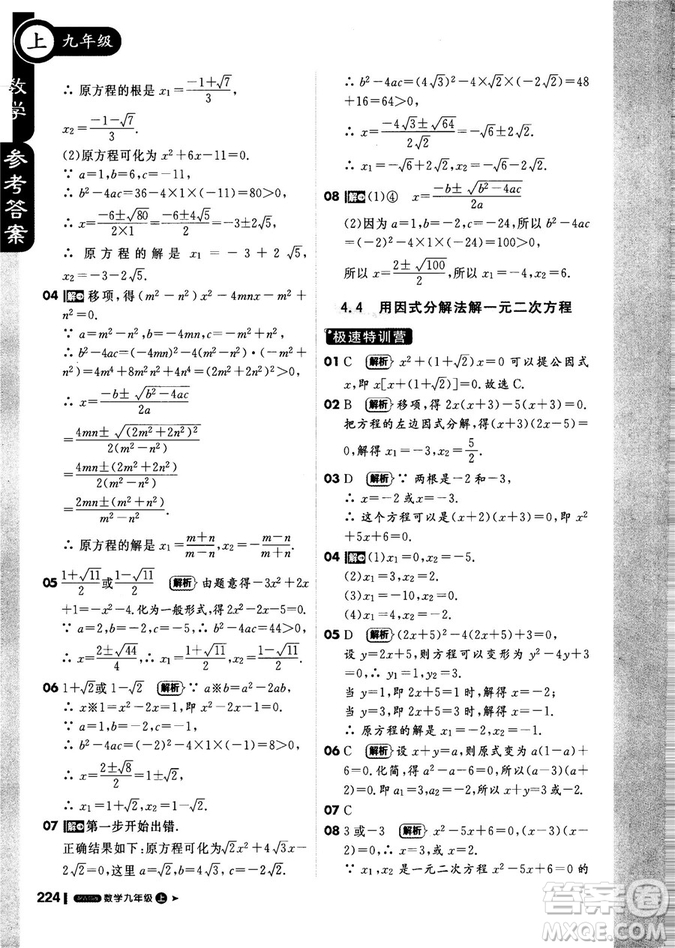 上 九年级
数学
参考答案
∴ 原方程的根是 x₁=(-1+√7)/3,
x₂=(-1-√7)/3.
(2)原方程可化为 x²+6x-11=0.
∵ a=1,b=6,c=-11,
∴ b²-4ac=36-4×1×(-11)=80>0,
∴ x=(-6±√80)/(2×1)=(-6±4√5)/2,
∴ 原方程的解是 x₁=-3+2√5,
x₂=-3-2√5.
04 解 移项,得(m²-n²)x²-4mnx-m²+
n²=0.
∵ a=m²-n²,b=-4mn,c=-m²+n²,
∴ b²-4ac=(-4mn)²-4(m²-n²)(-m²+
n²)=4m⁴+8m²n²+4n⁴=4(m²+n²)²≥0,
∴ x=(-b±√(b²-4ac))/2a
=(4mn±√((2m²+2n²)²))/(2(m²-n²))
=(4mn±(2m²+2n²))/(2(m²-n²))
=(2mn±(m²+n²))/(m²-n²),
∴ 原方程的解是 x₁=(m+n)/(m-n),x₂=(n-m)/(m+n).
05 (1+√11)/2或(1-√11)/2 解析 由题意得-3x²+2x
+1=-4.
∵ a=2,b=-2,c=-5,
∴ b²-4ac=(-2)²-4×2×(-5)=44>0,
∴ x=(2±√44)/(2×2),∴ x₁=(1+√11)/2,x₂=(1-√11)/2.
06 1+√2或1-√2 解析 ∵ a※b=a²-2ab-b²,
∴ x※1=x²-2x-1,即 x²-2x-1=0.
∴ b²-4ac=(-2)²-4×1×(-1)=8>0,
∴ x=(2±√8)/2=1±√2.
07 解 第一步开始出错.
正确结果如下:原方程可化为√2x²+4√3x-
2√2=0,
∵ a=√2,b=4√3,c=-2√2,
∴ b²-4ac=(4√3)²-4×√2×(-2√2)=48
+16=64>0,
∴ x=(-4√3±√64)/(2√2),
∴ x₁=-√6+2√2,x₂=-√6-2√2.
08 解 (1)④ x=(-b±√(b²-4ac))/2a
(2)因为 a=1,b=-2,c=-24,所以 b²-4ac
=(-2)²-4×1×(-24)=100>0,所以 x=
(2±√100)/2.
所以 x₁=6,x₂=-4.
4.4 用因式分解法解一元二次方程
极速特训营
01 C 解析 x²+(1+√2)x=0可以提公因式
x,即 x[x+(1+√2)]=0.故选C.
02 B 解析 移项,得2x(x+3)-5(x+3)=0.
把方程的左边因式分解,得(x+3)(2x-5)=
0,解得 x₁=-3,x₂=5/2.
03 D 解析 ∵ 两根是-2和-3,
∴ x=-2或x=-3.
∴ 这个方程可以是(x+2)(x+3)=0,即 x²
+5x+6=0.
04 解 (1)x₁=0,x₂=-5.
(2)x₁=3,x₂=2.
(3)x₁=-10,x₂=0.
(4)x₁=4,x₂=-2.
05 D 解析 (2x+5)²-4(2x+5)+3=0,
设 y=2x+5,则原方程可变为 y²-4y+3=0.
当 y=1,即2x+5=1时,解得 x=-2;
当 y=3,即2x+5=3时,解得 x=-1.
∴ 原方程的解为 x₁=-1,x₂=-2.
06 C 解析 设 x+y=a,则原式变为 a(1-a)+
6=0.化简,得 a²-a-6=0.解得 a₁=3,a₂=-2.
07 C
08 3或-3 解析 x²-5x+6=0,(x-2)(x-
3)=0,
∵ x²-5x+6=0是一元二次方程 x²-5x+6=
224 数学九年级 上
答案圈